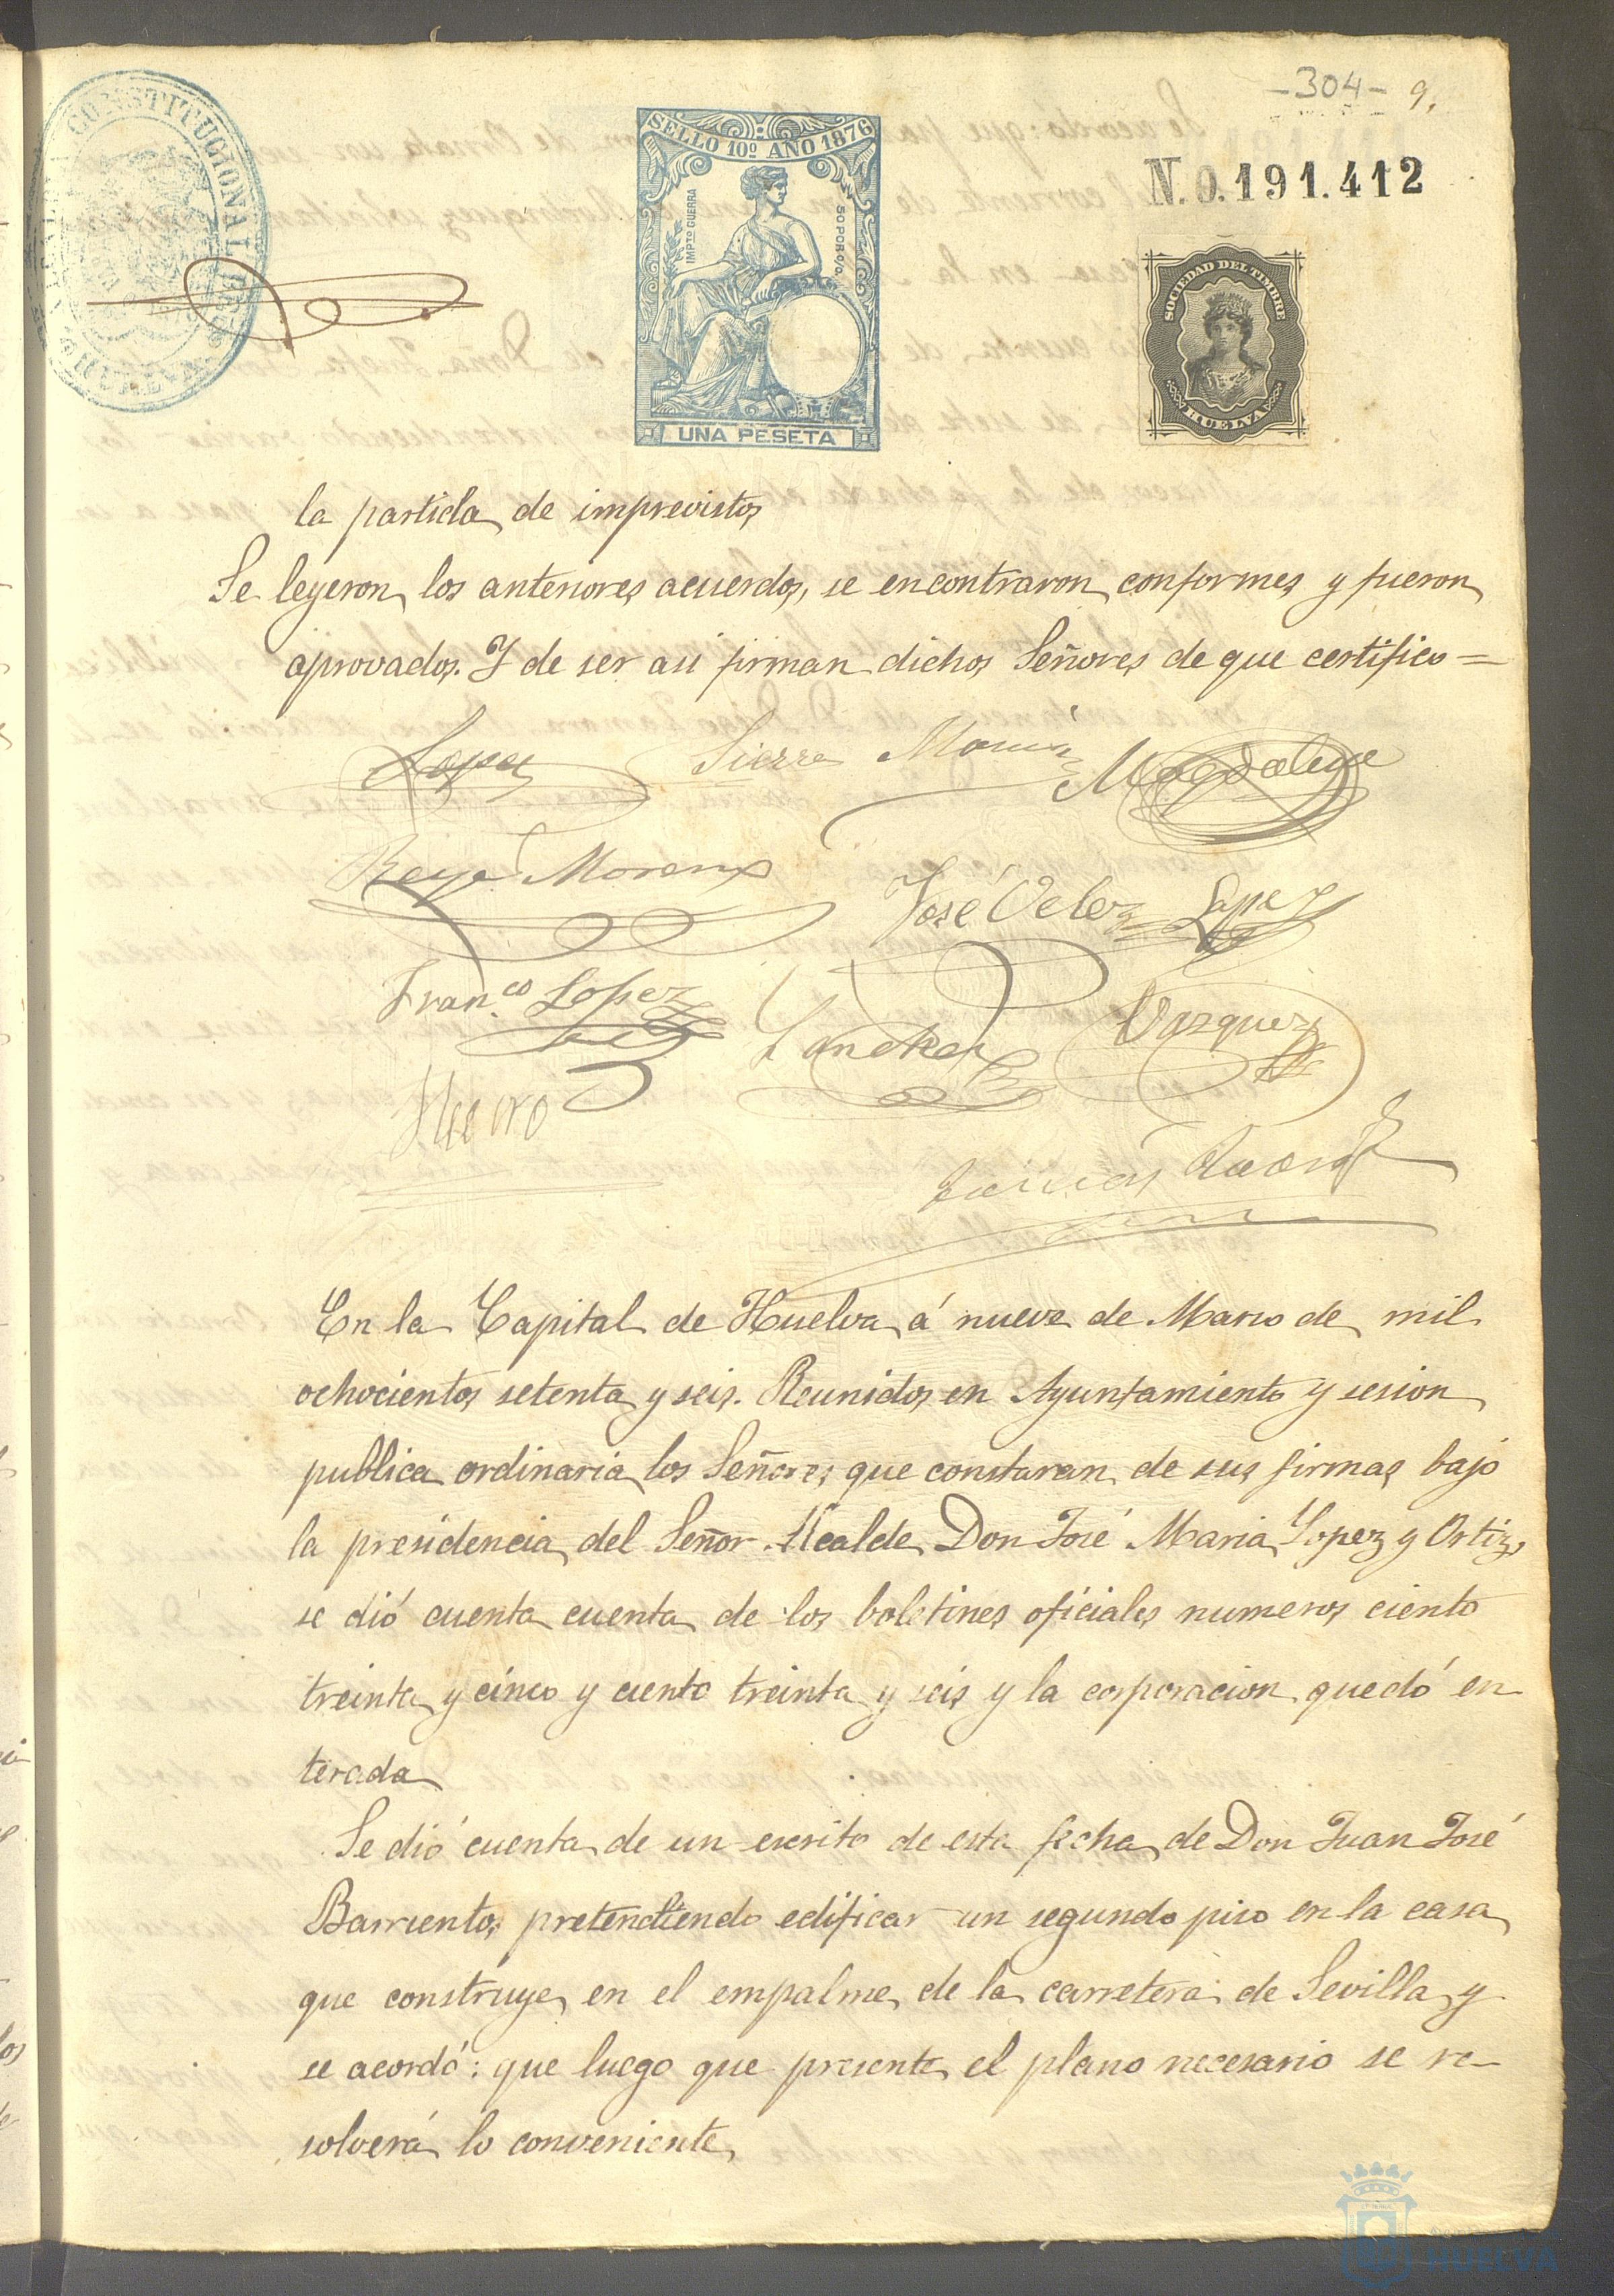 -304- 9.
CONSTITUCIONAL
HUELVA
SELLO 10º AÑO 1876
IMPTO GUERRA
50 POR %
UNA PESETA
N.0.191.412
SOCIEDAD DEL TIMBRE
HUELVA
la partida de imprevistos
Se leyeron los anteriores acuerdos, se encontraron conformes y fueron
aprovados. Y de ser asi firman dichos Señores de que certifico=
Lopez Sierra
Reyes Moreno José Velez Lopez
Fran.co Lopez Sanchez Vazquez
En la Capital de Huelva á nueve de Marzo de mil
ochocientos setenta y seis. Reunidos en Ayuntamiento y sesion
publica ordinaria los Señores que constaran de sus firmas bajo
la presidencia del Señor Alcalde Don José Maria Lopez y Ortiz,
se dió cuenta cuenta de los boletines oficiales numeros ciento
treinta y cinco y ciento treinta y seis y la corporacion quedó en
terada
Se dió cuenta de un escrito de esta fecha de Don Juan José
Barrientos pretendiendo edificar un segundo piso en la casa
que construye en el empalme de la carretera de Sevilla y
se acordó: que luego que presente el plano necesario se re-
solverá lo conveniente
HUELVA